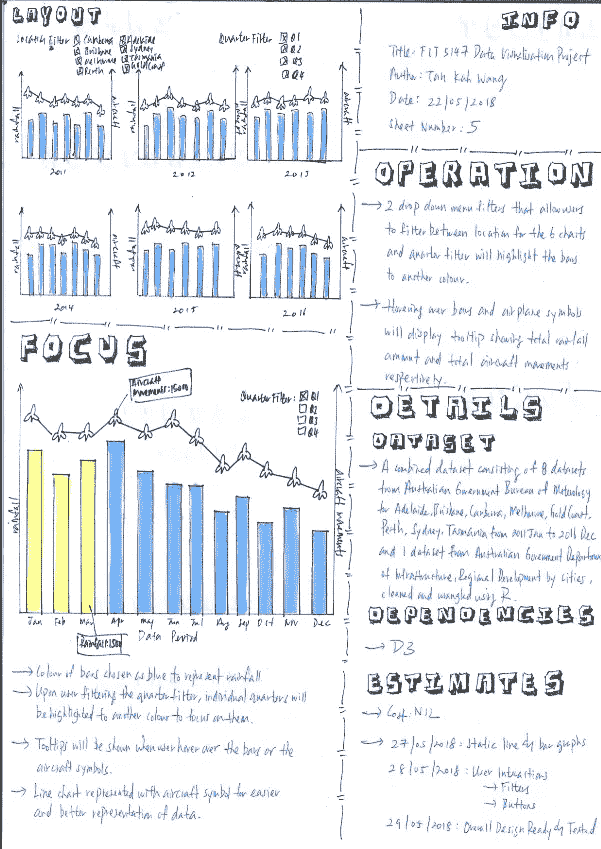 LAYOUT
Location Filter
Canberra
Adelaide
Brisbane
Sydney
Melbourne
Tasmania
Perth
Gold Coast
Quarter Filter
Q1
Q2
Q3
Q4
rainfall
aircraft
2011
rainfall
aircraft
2012
rainfall
aircraft
2013
rainfall
aircraft
2014
rainfall
aircraft
2015
rainfall
aircraft
2016
FOCUS
Aircraft
movements: 150m
Quarter Filter:
Q1
Q2
Q3
Q4
rainfall
aircraft movements
Jan Feb Mar Apr May Jun Jul Aug Sep Oct Nov Dec
Data Period
Rainfall:
→ Colour of bars chosen as blue to represent rainfall.
→ Upon user filtering the quarter filter, individual quarters will
be highlighted to another colour to focus on them.
→ Tooltips will be shown when user hover over the bars or the
aircraft symbols.
→ Line chart represented with aircraft symbol for easier
and better representation of data.
INFO
Title: FIT 5147 Data Visualisation Project
Author: Tan Kah Wang
Date: 22/05/2018
Sheet Number: 5
OPERATION
→ 2 drop down menu filters that allow users
to filter between location for the 6 charts
and quarter filter will highlight the bars
to another colour.
→ Hovering over bars and airplane symbols
will display tooltip showing total rainfall
amount and total aircraft movements
respectively.
DETAILS
DATASET
→ A combined dataset consisting of 8 datasets
from Australian Government Bureau of Meteorology
for Adelaide, Brisbane, Canberra, Melbourne, Gold Coast,
Perth, Sydney, Tasmania from 2011 Jan to 2016 Dec
and 1 dataset from Australian Government Department
of Infrastructure, Regional Development by cities,
cleaned and wrangled using R.
DEPENDENCIES
→ D3
ESTIMATES
→ Cost: NIL
→ 27/05/2018: Static line & bar graphs
28/05/2018: User Interactions
→ Filters
→ Buttons
29/05/2018: Overall Design Ready & Tested